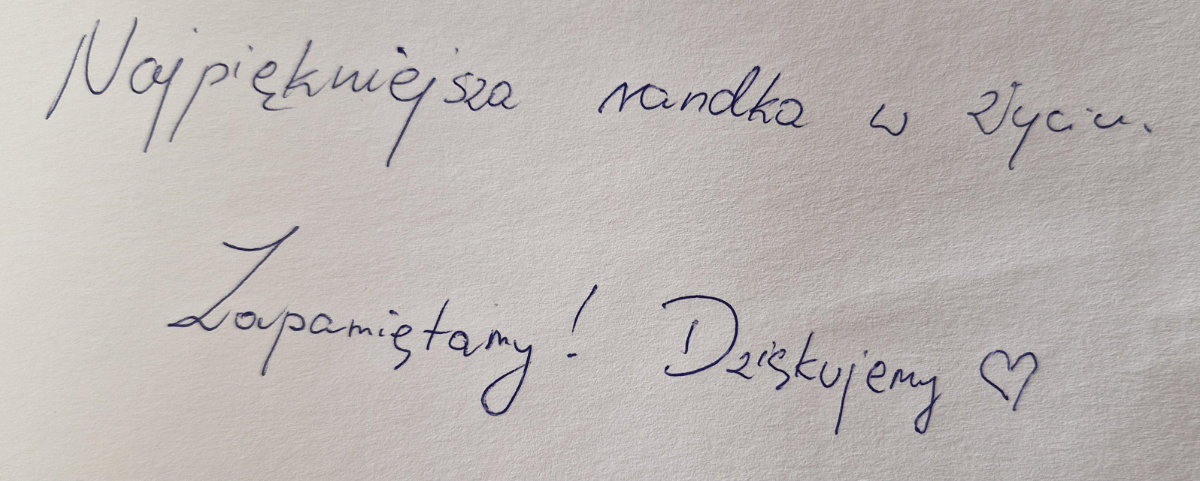 Najpiękniejsza randka w życiu.
Zapamiętamy! Dziękujemy ♡